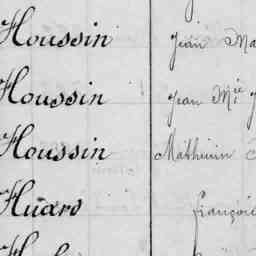 Houssin Jean Ma
Houssin Jean Mie J
Houssin Mathurin
Huard françois